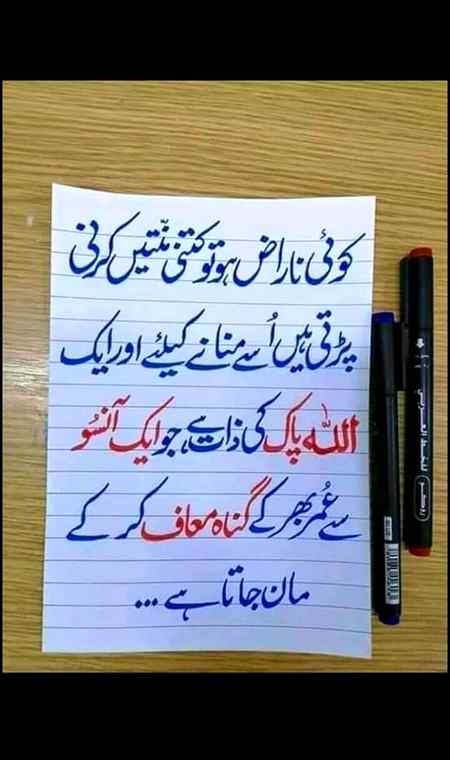 کوئی ناراض ہو تو کتنی منّتیں کرنی
پڑتی ہیں اُسے منانے کیلئے اور ایک
اللہ پاک کی ذات ہے، جو ایک آنسُو
سے عُمر بھر کے گناہ معاف کر کے
مان جاتا ہے ...